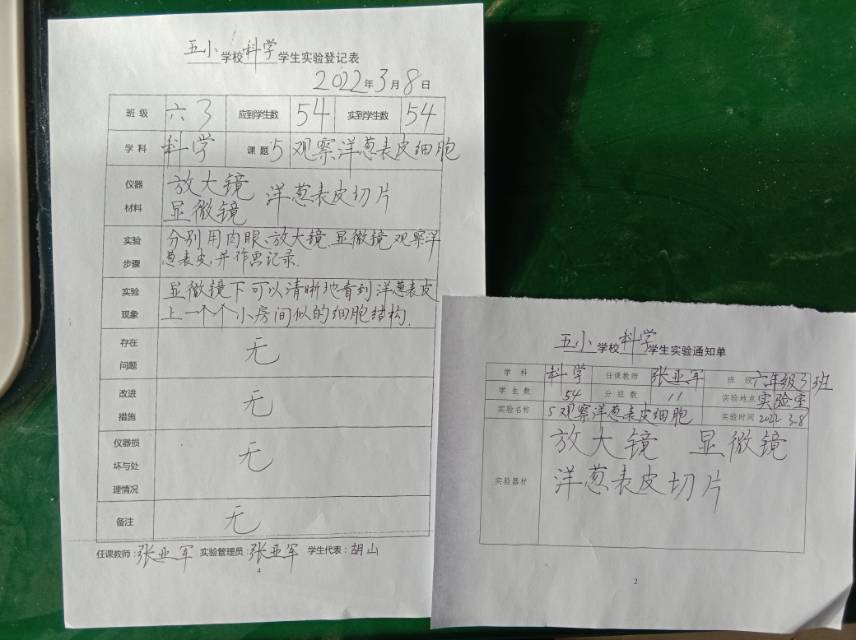 五小学校科学学生实验登记表
2022年3月8日
班级 六3 应到学生数 54 实到学生数 54
学科 科学 课题 5 观察洋葱表皮细胞
仪器材料 放大镜 洋葱表皮切片
显微镜
实验步骤 分别用肉眼、放大镜、显微镜观察洋
葱表皮,并作出记录.
实验现象 显微镜下可以清晰地看到洋葱表皮
上一个个小房间似的细胞结构.
存在问题 无
改进措施 无
仪器损坏与处理情况 无
备注 无
任课教师:张亚军 实验管理员:张亚军 学生代表:胡山
4
五小学校科学学生实验通知单
学科 科学 任课教师 张亚军 班级 六年级3班
学生数 54 分组数 11 实验地点 实验室
实验名称 5观察洋葱表皮细胞 实验时间 2022.3.8
实验器材 放大镜 显微镜
洋葱表皮切片
2